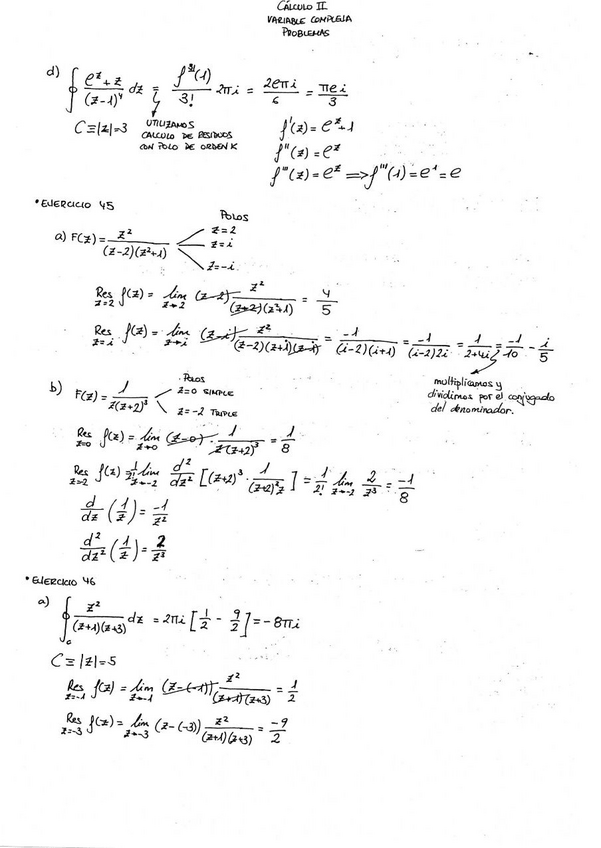 CÁLCULO II
VARIABLE COMPLEJA
PROBLEMAS
d) ∮ (e^z + z)/(z-1)^4 dz = f'''(1)/3! 2πi = 2eπi/6 = πei/3
C≡|z|=3
UTILIZAMOS
CALCULO DE RESIDUOS
CON POLO DE ORDEN K
f'(z) = e^z+1
f''(z) = e^z
f'''(z) = e^z ⟹ f'''(1) = e^1 = e
• EJERCICIO 45
a) F(z) = z^2/((z-2)(z^2+1))
POLOS
z=2
z=i
z=-i
Res z=2 f(z) = lim z→2 (z-2) z^2/((z-2)(z^2+1)) = 4/5
Res z=i f(z) = lim z→i (z-i) z^2/((z-2)(z+i)(z-i)) = -1/((i-2)(i+i)) = -1/((i-2)2i) = 1/(2+4i) = -1/10 - i/5
multiplicamos y
dividimos por el conjugado
del denominador.
b) F(z) = 1/(z(z+2)^3)
POLOS
z=0 SIMPLE
z=-2 TRIPLE
Res z=0 f(z) = lim z→0 (z-0) · 1/(z(z+2)^3) = 1/8
Res z=2 f(z) = 1/2! lim z→-2 d^2/dz^2 [(z+2)^3 · 1/((z+2)^3 z)] = 1/2! lim z→-2 2/z^3 = -1/8
d/dz (1/z) = -1/z^2
d^2/dz^2 (1/z) = 2/z^3
• EJERCICIO 46
a) ∮_C z^2/((z+1)(z+3)) dz = 2πi [1/2 - 9/2] = -8πi
C≡|z|=5
Res z=-1 f(z) = lim z→-1 (z-(-1)) z^2/((z+1)(z+3)) = 1/2
Res z=-3 f(z) = lim z→-3 (z-(-3)) z^2/((z+1)(z+3)) = -9/2